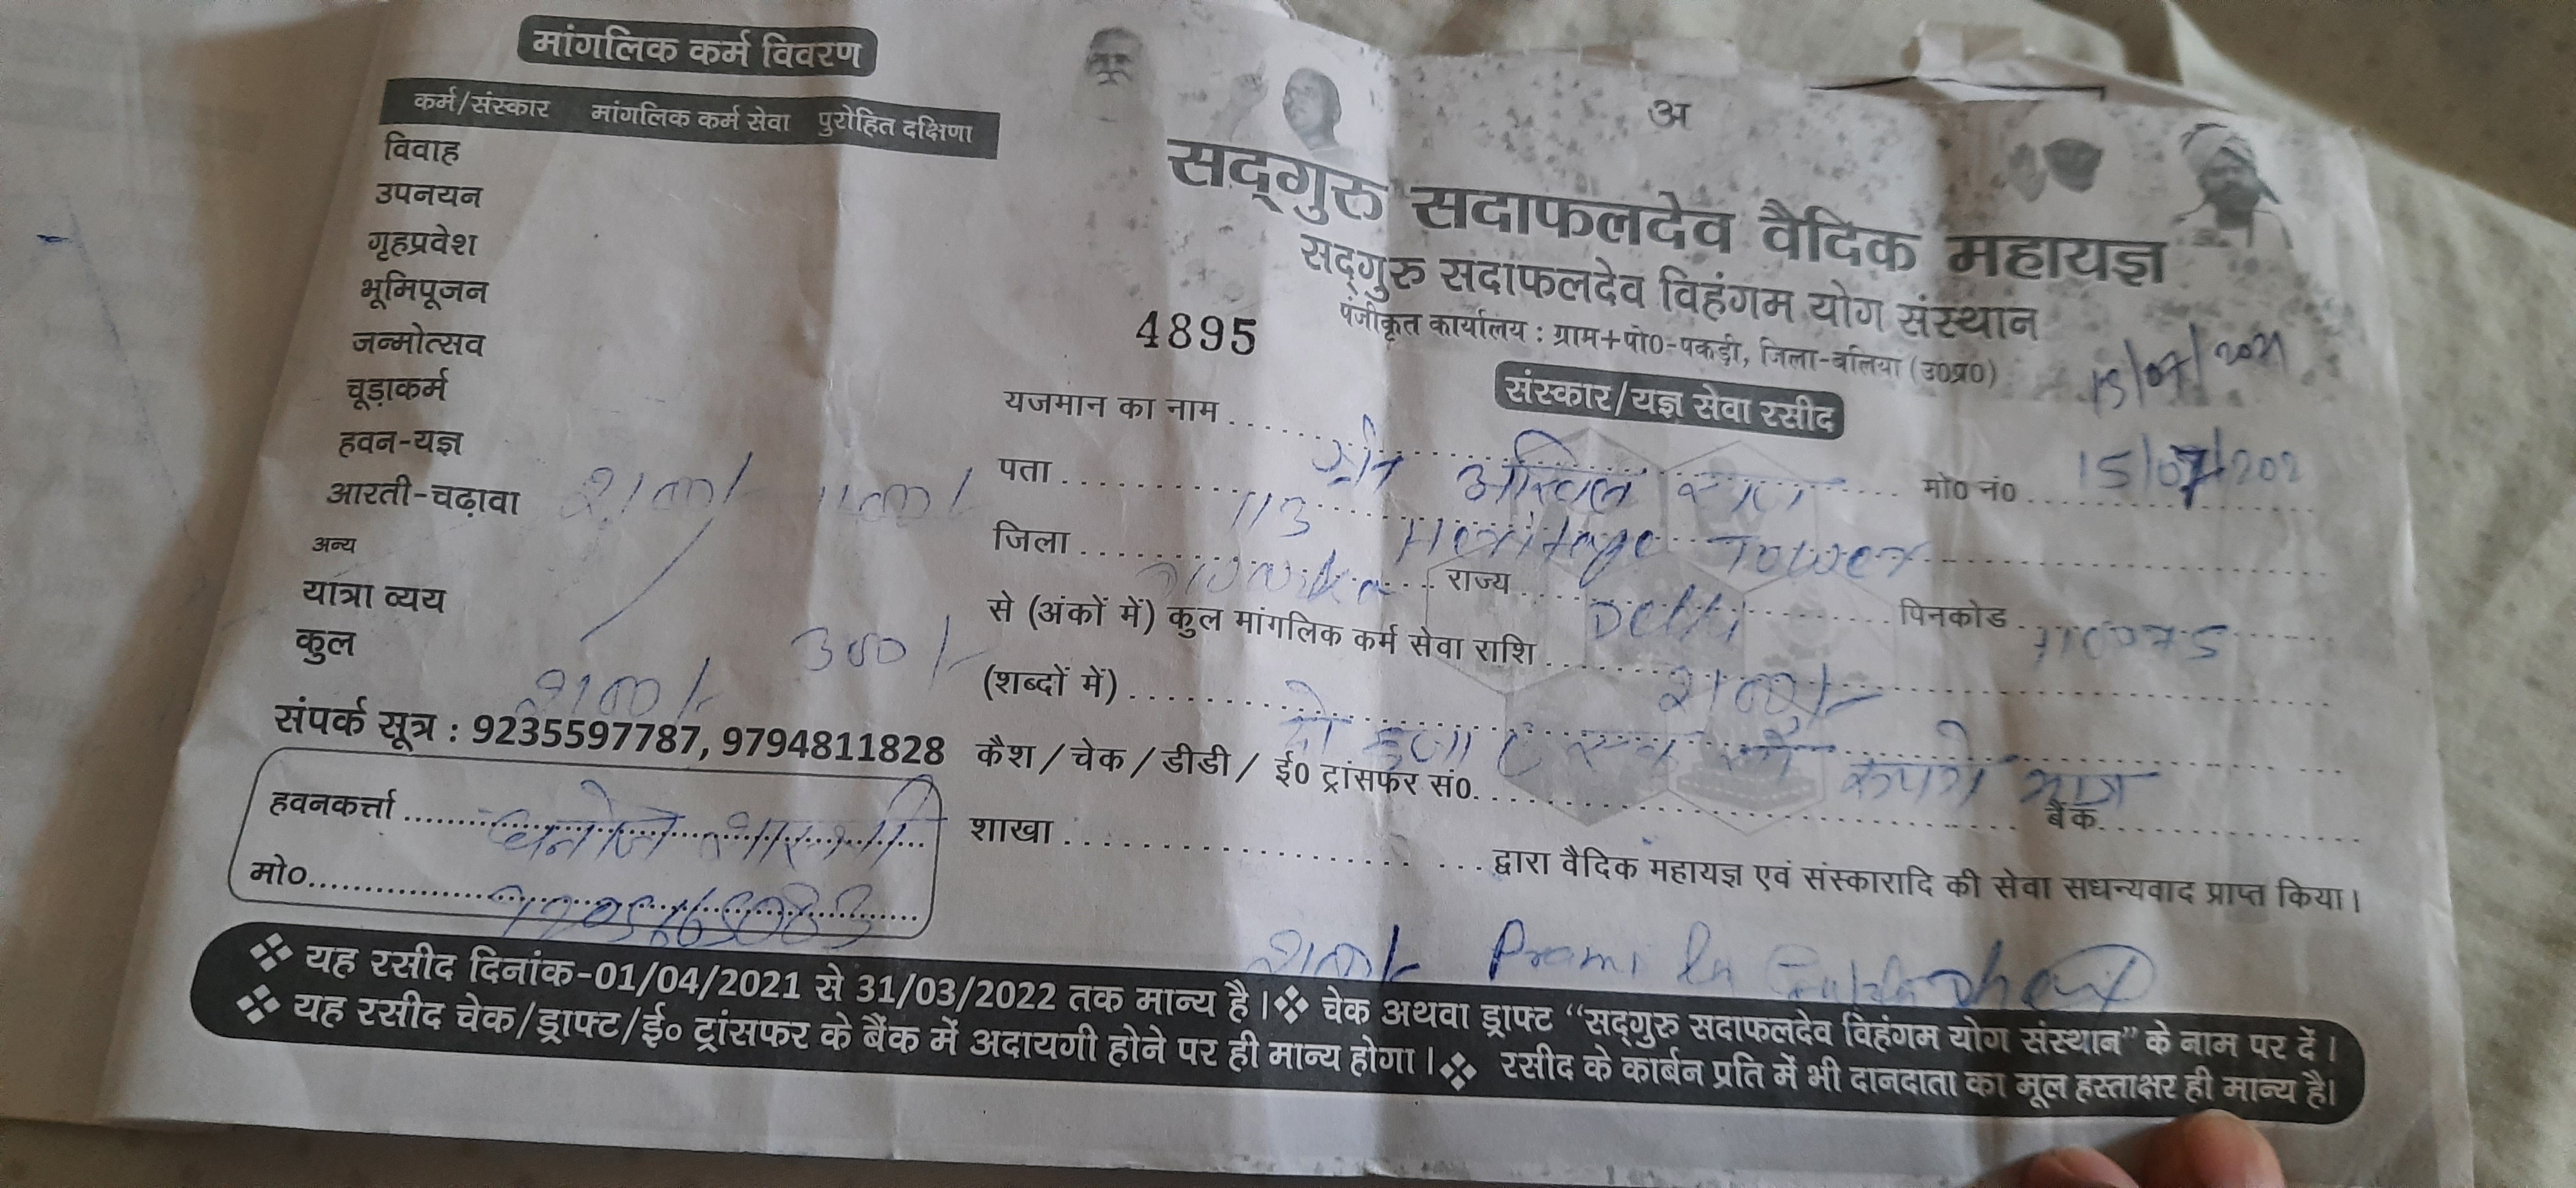 मांगलिक कर्म विवरण
कर्म/संस्कार मांगलिक कर्म सेवा पुरोहित दक्षिणा
विवाह
उपनयन
गृहप्रवेश
भूमिपूजन
जन्मोत्सव
चूड़ाकर्म
हवन-यज्ञ
आरती-चढ़ावा 2100/- 1100/-
अन्य
यात्रा व्यय 300/-
कुल 2100/-
संपर्क सूत्र : 9235597787, 9794811828
हवनकर्त्ता
मो०
अ
सद्गुरु सदाफलदेव वैदिक महायज्ञ
सद्गुरु सदाफलदेव विहंगम योग संस्थान
पंजीकृत कार्यालय : ग्राम+पो0-पकड़ी, जिला-बलिया (उ0प्र0)
4895
15/07/2021
संस्कार/यज्ञ सेवा रसीद
यजमान का नाम श्री अखिल मो0 नं0 15/07/202
पता 113 Heritage Tower
जिला राज्य Delhi पिनकोड 110075
से (अंकों में) कुल मांगलिक कर्म सेवा राशि 2100/-
(शब्दों में) दो हजार एक सौ रुपये मात्र
कैश / चेक / डीडी / ई0 ट्रांसफर सं0 बैंक
शाखा द्वारा वैदिक महायज्ञ एवं संस्कारादि की सेवा सधन्यवाद प्राप्त किया।
2100/- Pramila
❖ यह रसीद दिनांक-01/04/2021 से 31/03/2022 तक मान्य है।❖ चेक अथवा ड्राफ्ट “सद्गुरु सदाफलदेव विहंगम योग संस्थान” के नाम पर दें।
❖ यह रसीद चेक/ड्राफ्ट/ई० ट्रांसफर के बैंक में अदायगी होने पर ही मान्य होगा।❖ रसीद के कार्बन प्रति में भी दानदाता का मूल हस्ताक्षर ही मान्य है।